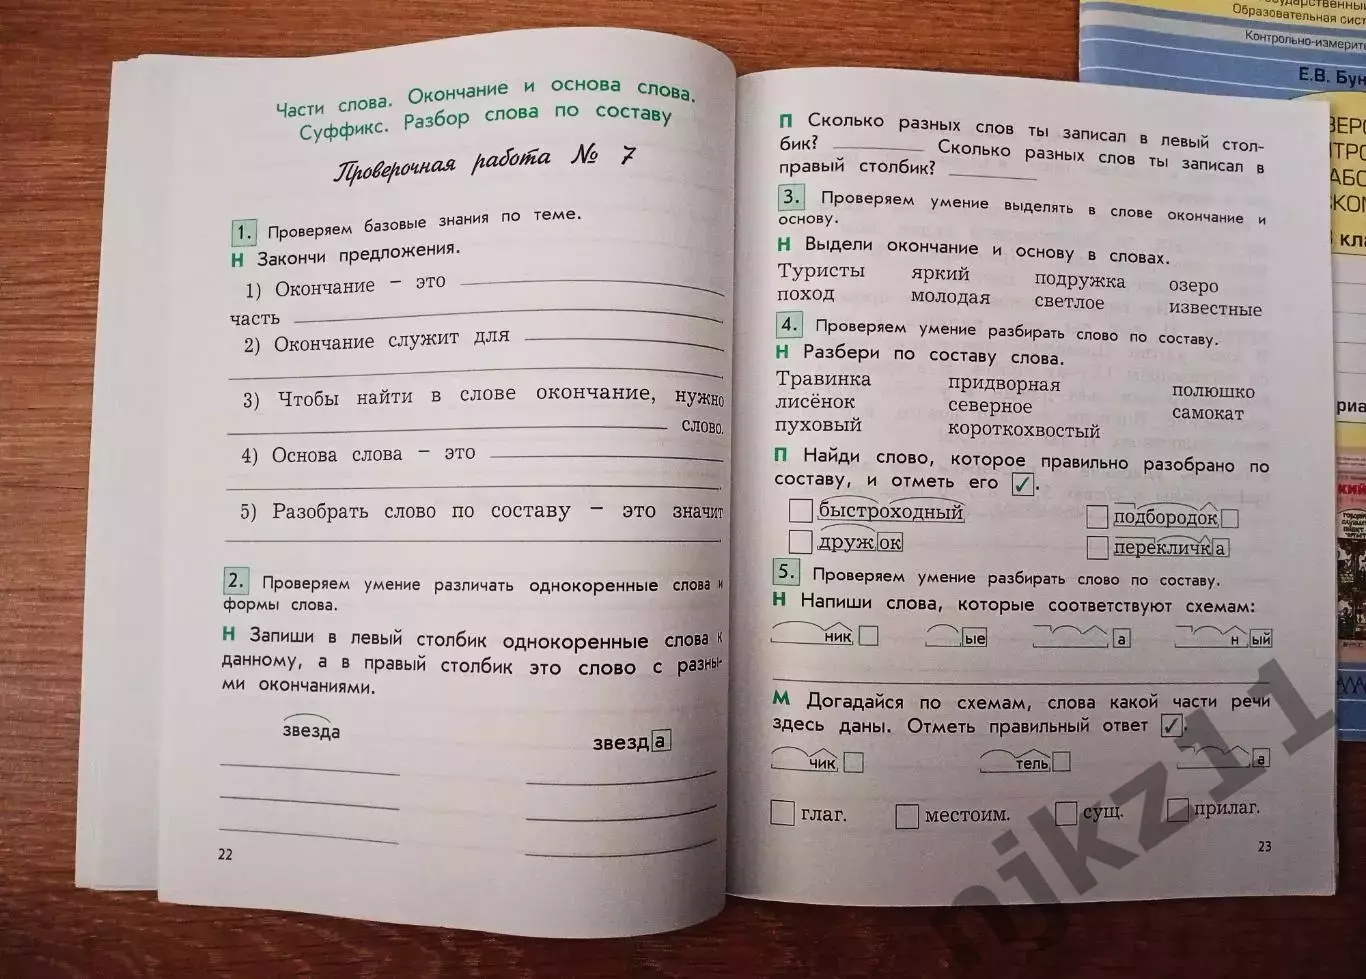 Части слова. Окончание и основа слова.
Суффикс. Разбор слова по составу
Проверочная работа № 7
1. Проверяем базовые знания по теме.
Н Закончи предложения.
1) Окончание – это
часть
2) Окончание служит для
3) Чтобы найти в слове окончание, нужно
слово.
4) Основа слова – это
5) Разобрать слово по составу – это значит
2. Проверяем умение различать однокоренные слова и
формы слова.
Н Запиши в левый столбик однокоренные слова к
данному, а в правый столбик это слово с разны-
ми окончаниями.
звезда звезда
22
П Сколько разных слов ты записал в левый стол-
бик? Сколько разных слов ты записал в
правый столбик?
3. Проверяем умение выделять в слове окончание и
основу.
Н Выдели окончание и основу в словах.
Туристы яркий подружка озеро
поход молодая светлое известные
4. Проверяем умение разбирать слово по составу.
Н Разбери по составу слова.
Травинка придворная полюшко
лисёнок северное самокат
пуховый короткохвостый
П Найди слово, которое правильно разобрано по
составу, и отметь его ✓.
быстроходный подбородок
дружок перекличка
5. Проверяем умение разбирать слово по составу.
Н Напиши слова, которые соответствуют схемам:
ник ые а н ый
М Догадайся по схемам, слова какой части речи
здесь даны. Отметь правильный ответ ✓.
чик тель а
глаг. местоим. сущ. прилаг.
23
Образовательная сист
Контрольно-измерите
Е.В. Бун
njkz11